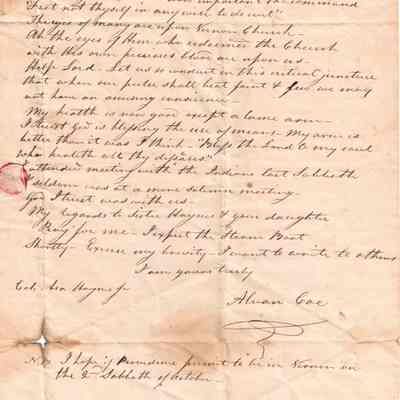 important the command
"Fret not thyself in any wise to do evil"
The eyes of many are upon Vernon Church –
Ah the eyes of Him who redeemed the Church
with his own precious blood are upon us.
Help Lord – Let us so conduct in this critical juncture
that when our pulse shall beat faint & few we may
not have an accusing conscience –
My health is now good except a lame arm –
I trust God is blessing the use of means. My arm is
better than it was I think – "Bless the Lord O my soul
who healeth all thy diseases"
I attended meeting with the Indians last Sabbath
Seldom was at a more solemn meeting –
God I trust was with us –
My regards to Sister Haynes & your daughter
Pray for me – I expect the Steam Boat
Shortly – Excuse my brevity – I want to write to others
I am yours truly
Alvan Coe
Col. Asa Haynes Jr
N.B. I hope if Providence permit to be in Vernon on
the 2nd Sabbath of October –